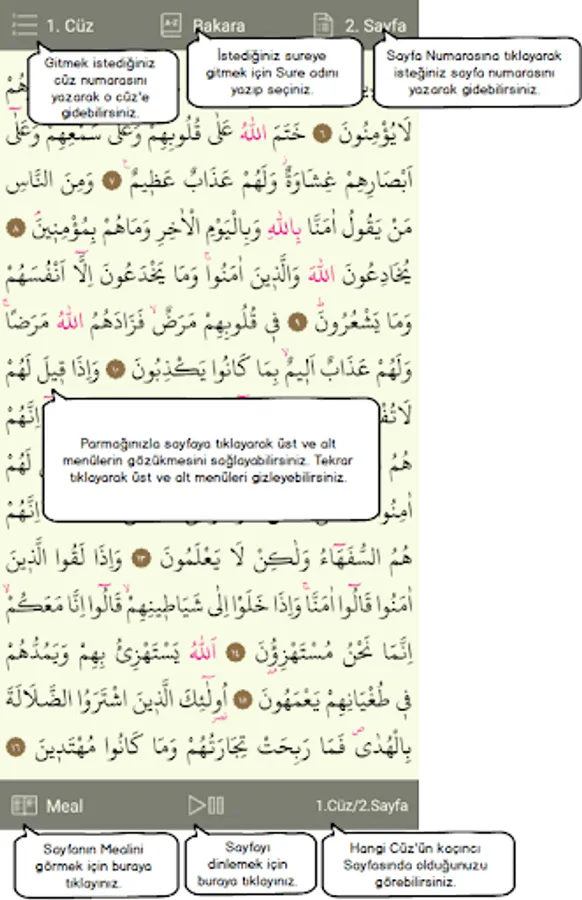 1. Cüz
Bakara
2. Sayfa
Gitmek istediğiniz
cüz numarasını
yazarak o cüz'e
gidebilirsiniz.
İstediğiniz sureye
gitmek için Sure adını
yazıp seçiniz.
Sayfa Numarasına tıklayarak
isteğiniz sayfa numarasını
yazarak gidebilirsiniz.
لَايُؤْمِنُونَ ٦ خَتَمَ اللّٰهُ عَلٰى قُلُوبِهِمْ وَعَلٰى سَمْعِهِمْ وَعَلٰٓى
اَبْصَارِهِمْ غِشَاوَةٌ وَلَهُمْ عَذَابٌ عَظِيمٌ ٧ وَمِنَ النَّاسِ
مَنْ يَقُولُ اٰمَنَّا بِاللّٰهِ وَبِالْيَوْمِ الْاٰخِرِ وَمَاهُمْ بِمُؤْمِنِينَ ٨
يُخَادِعُونَ اللّٰهَ وَالَّذِينَ اٰمَنُوا وَمَا يَخْدَعُونَ اِلَّٓا اَنْفُسَهُمْ
وَمَا يَشْعُرُونَ ٩ فِي قُلُوبِهِمْ مَرَضٌ فَزَادَهُمُ اللّٰهُ مَرَضًا
وَلَهُمْ عَذَابٌ اَلِيمٌ بِمَا كَانُوا يَكْذِبُونَ ١٠ وَاِذَا قِيلَ لَهُمْ
اِنَّهُمْ
Parmağınızla sayfaya tıklayarak üst ve alt
menülerin gözükmesini sağlayabilirsiniz. Tekrar
tıklayarak üst ve alt menüleri gizleyebilirsiniz.
هُمُ لَهُمْ
اٰمِنُوا اِنَّهُمْ
هُمُ السُّفَهَٓاءُ وَلٰكِنْ لَا يَعْلَمُونَ ١٣ وَاِذَا لَقُوا الَّذِينَ
اٰمَنُوا قَالُٓوا اٰمَنَّا وَاِذَا خَلَوْا اِلٰى شَيَاطِينِهِمْ قَالُٓوا اِنَّا مَعَكُمْ
اِنَّمَا نَحْنُ مُسْتَهْزِؤُ۫نَ ١٤ اَللّٰهُ يَسْتَهْزِئُ بِهِمْ وَيَمُدُّهُمْ
فِي طُغْيَانِهِمْ يَعْمَهُونَ ١٥ اُو۬لٰٓئِكَ الَّذِينَ اشْتَرَوُا الضَّلَالَةَ
بِالْهُدٰى فَمَا رَبِحَتْ تِجَارَتُهُمْ وَمَا كَانُوا مُهْتَدِينَ ١٦
Meal
1.Cüz/2.Sayfa
Sayfanın Mealini
görmek için buraya
tıklayınız.
Sayfayı
dinlemek için
buraya tıklayınız.
Hangi Cüz'ün kaçıncı
Sayfasında olduğunuzu
görebilirsiniz.